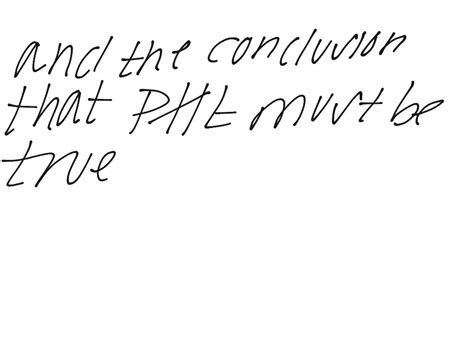 and the conclusion
that PHE must be
true